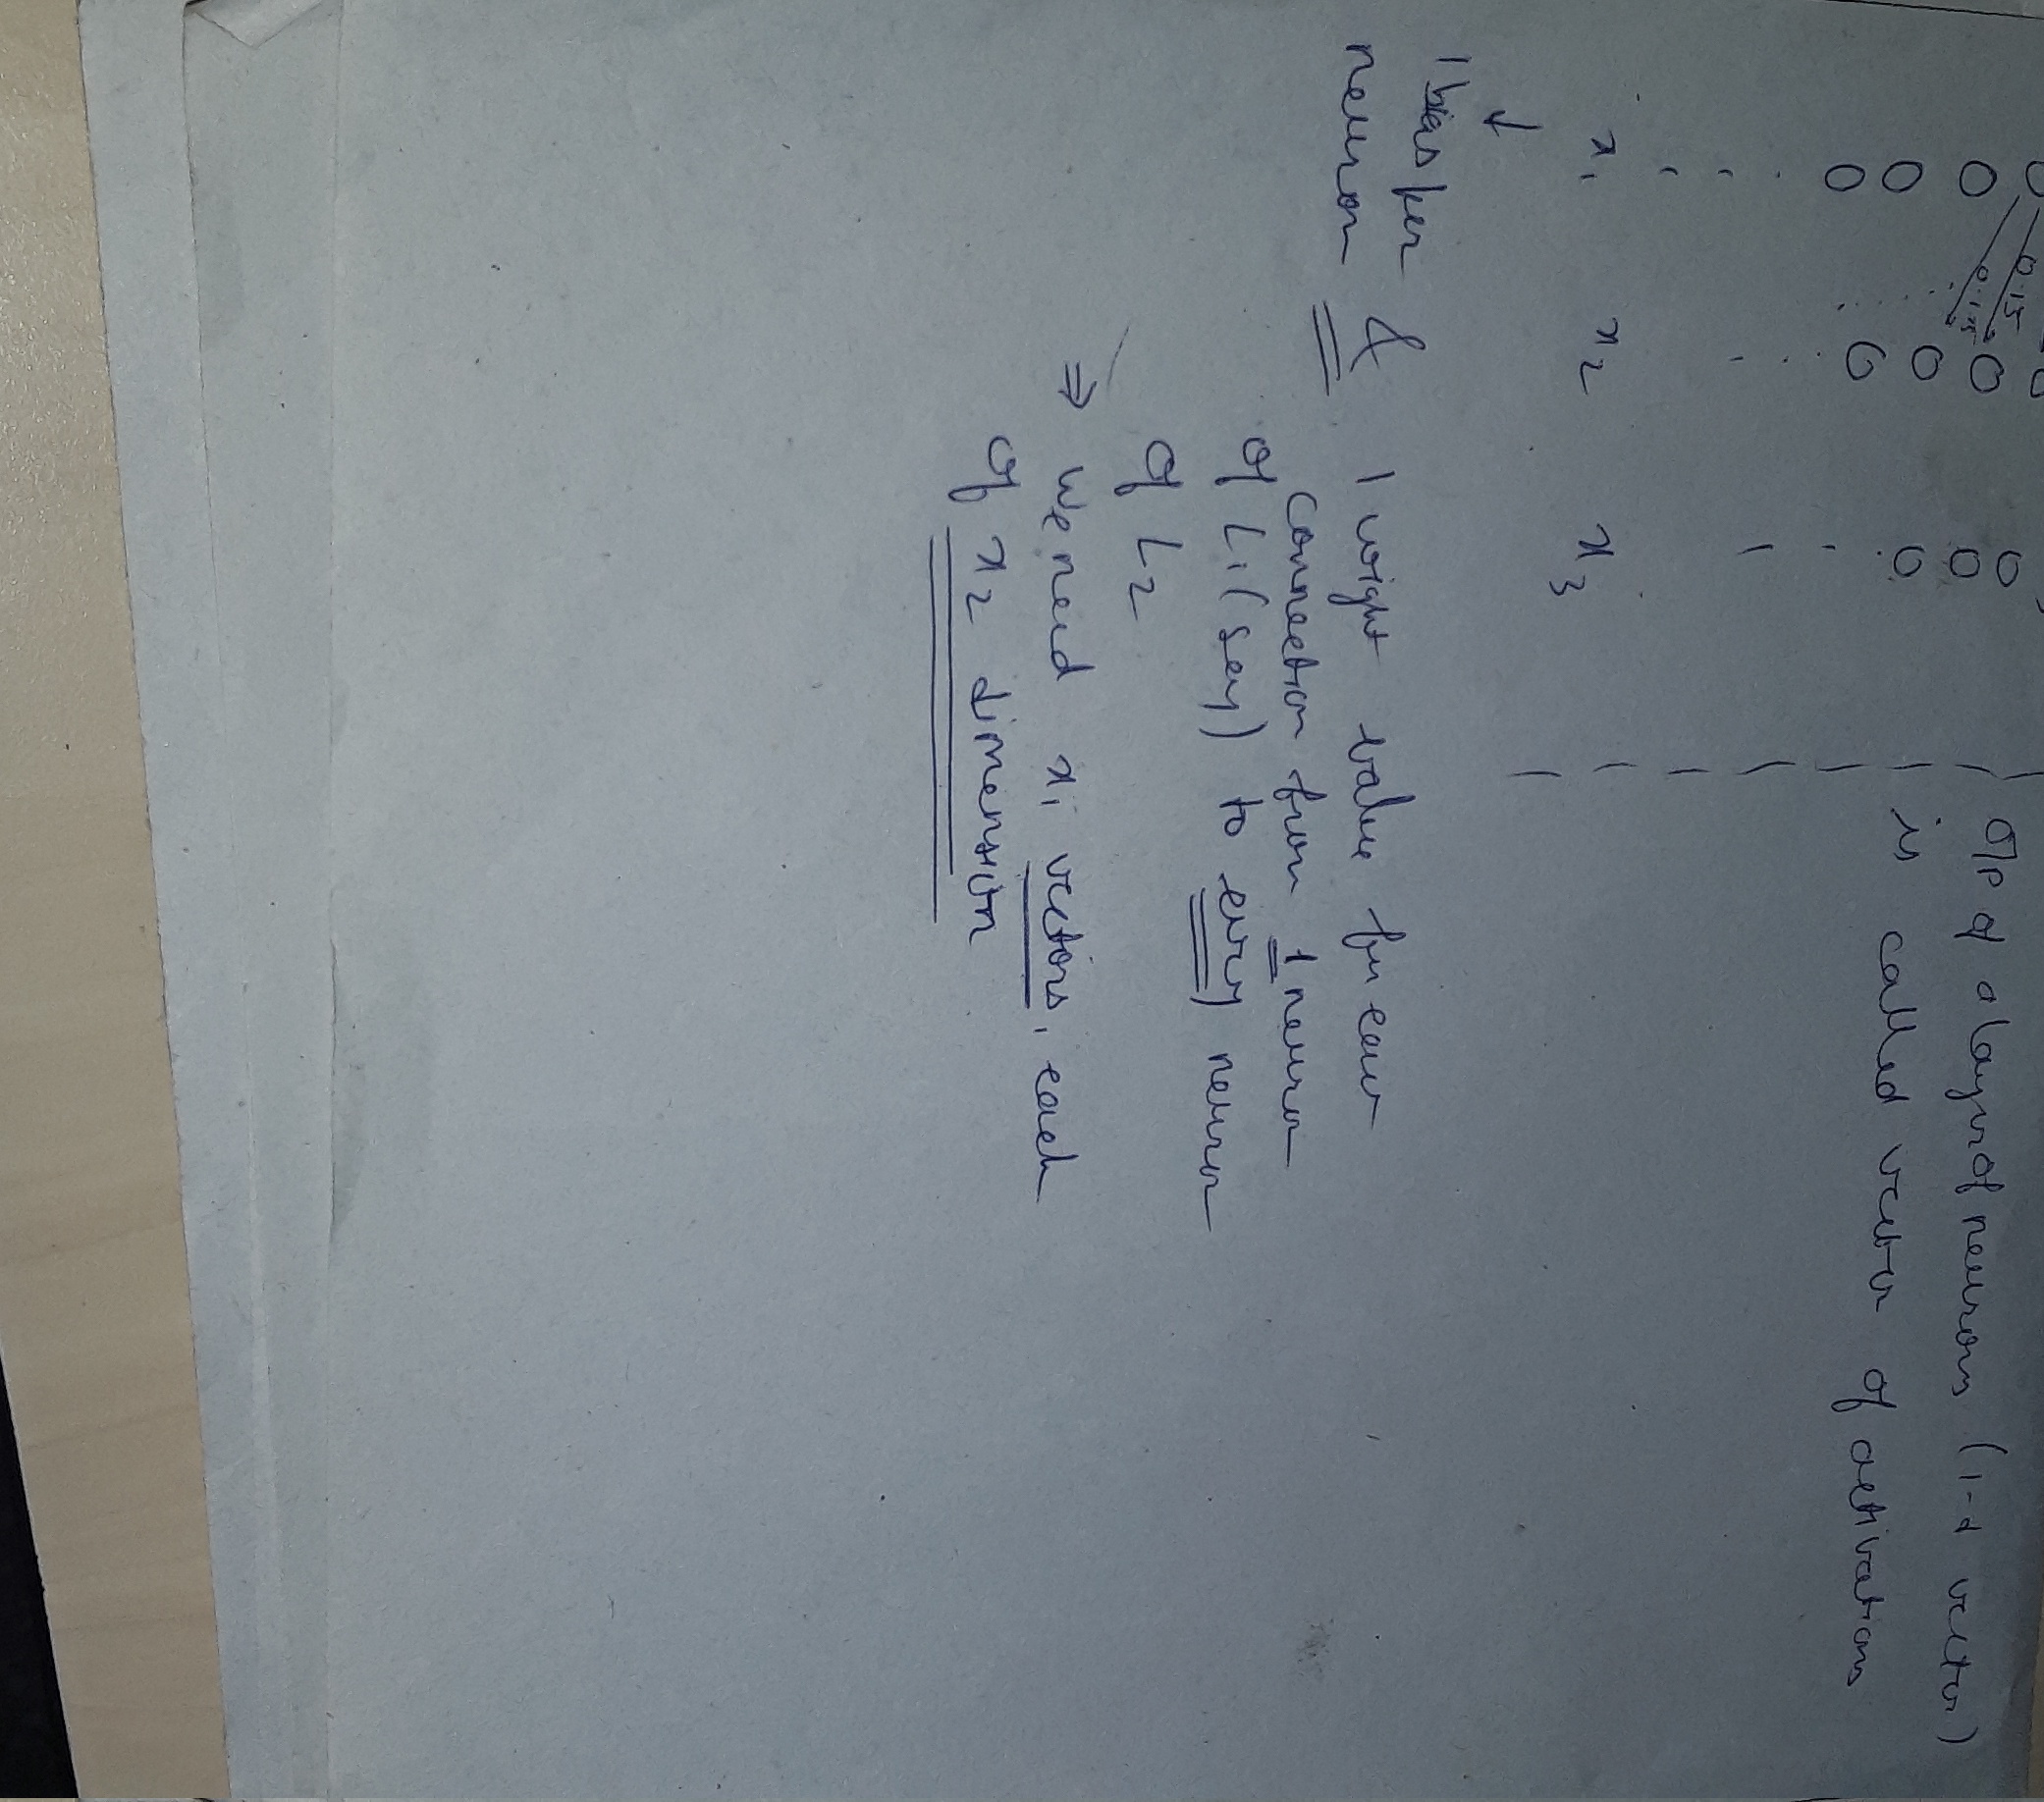 0.15
0.15
O/P of a layer of neurons (1-d vector)
is called vector of activations
x1 x2 x3
↓
1 bias per
neuron & 1 weight value for each
connection from 1 neuron
of L1 (say) to every neuron
of L2
⇒ we need x1 vectors, each
of x2 dimension